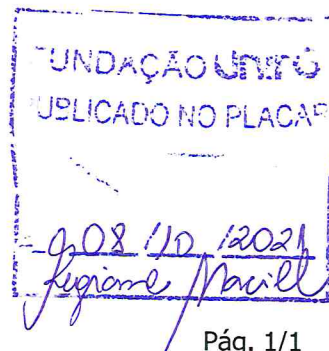 FUNDAÇÃO UNIRG
PUBLICADO NO PLACAR
08/10/2021
Pág. 1/1